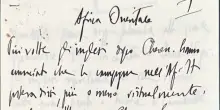 Africa Orientale I
Più volte gli inglesi dopo Cheren hanno
annunciato che la campagna nell'Af. It.
poteva dirsi più o meno virtualmente